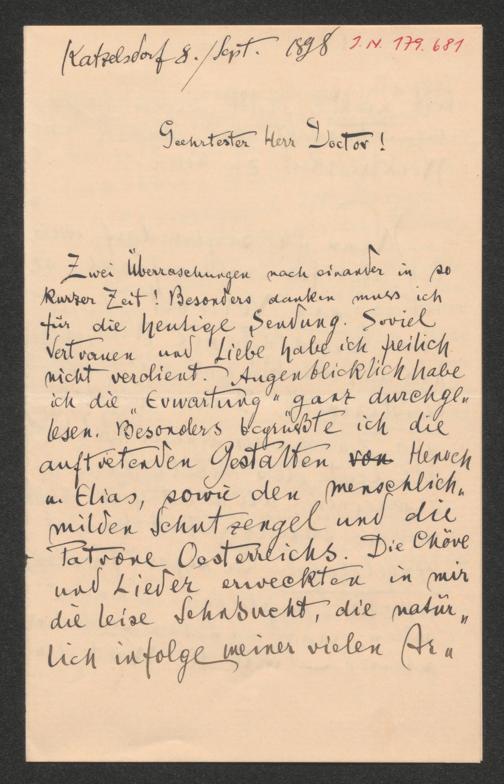 Katzelsdorf 8./Sept. 1898
J.N. 179.681
Geehrtester Herr Doctor!
Zwei Überraschungen nach einander in so
kurzer Zeit! Besonders danken muss ich
für die heutige Sendung. Soviel
Vertrauen und Liebe habe ich freilich
nicht verdient. Augenblicklich habe
ich die „Erwartung“ ganz durchge„
lesen. Besonders begrüßte ich die
auftretenden Gestalten von Henoch
u. Elias, sowie den menschlich„
milden Schutzengel und die
Patrone Oesterreichs. Die Chöre
und Lieder erweckten in mir
die leise Sehnsucht, die natür„
lich infolge meiner vielen Ar„